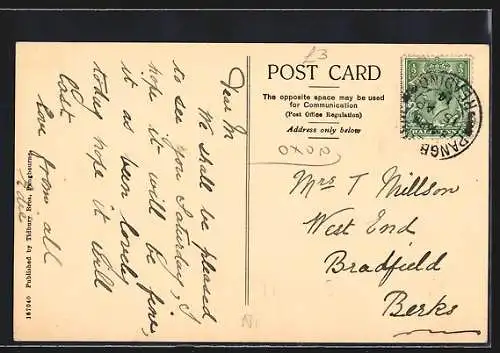 Dear M
We shall be pleased
to see you Saturday, I
hope it will be fine,
it as been lovely
today hope it will
last
love from all
£3
POST CARD
The opposite space may be used
for Communication
(Post Office Regulation)
Address only below
Mrs T Millson
West End
Bradfield
Berks
HALFPENNY
167040 Published by Tidbury Bros, Pangbourne